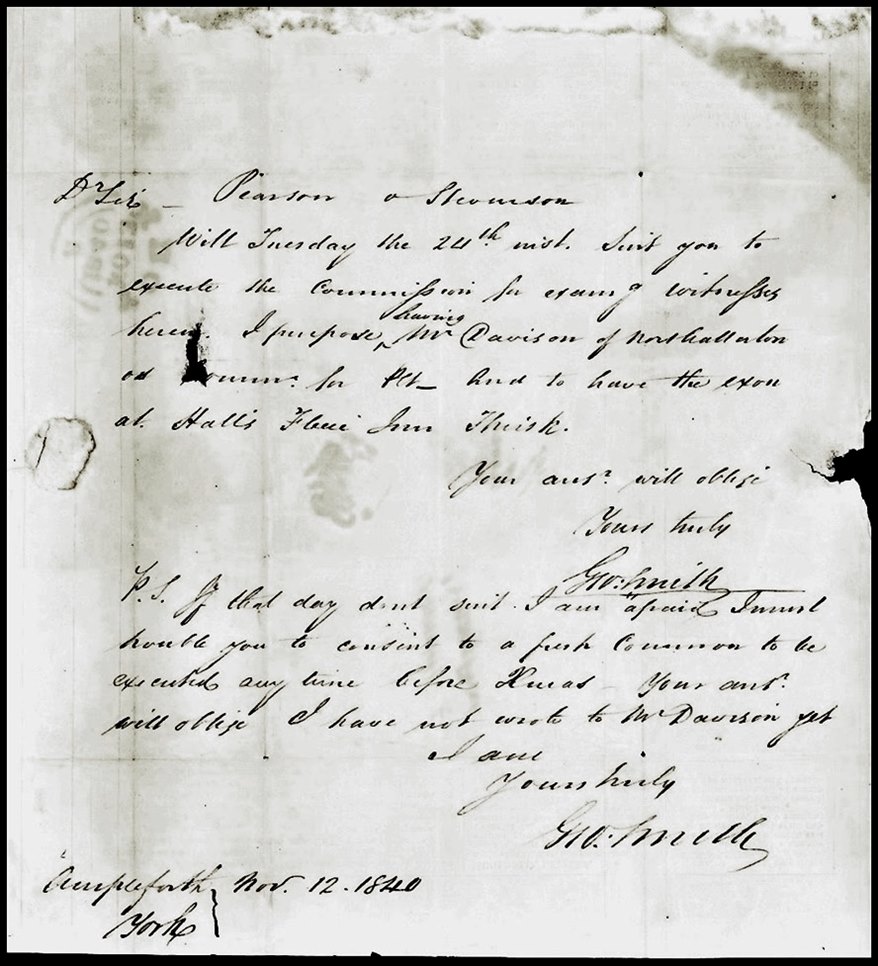 Dr Sir – Pearson v Stevenson
Will Tuesday the 24th inst. Suit you to
execute the Commission for examg witnesses
herein. I purpose having Mr Davison of Northallerton
as Commr. for Plt – And to have the exon
at Hall's Fleece Inn Thirsk.
Your ansr. will oblige
Yours truly
Geo: Smith
P.S. If that day dont suit I am afraid I must
trouble you to consent to a fresh Common to be
executed any time before Xmas – Your ansr.
will oblige I have not wrote to Mr Davison yet
I am
Yours truly
Geo: Smith
Ampleforth Nov. 12. 1840
York